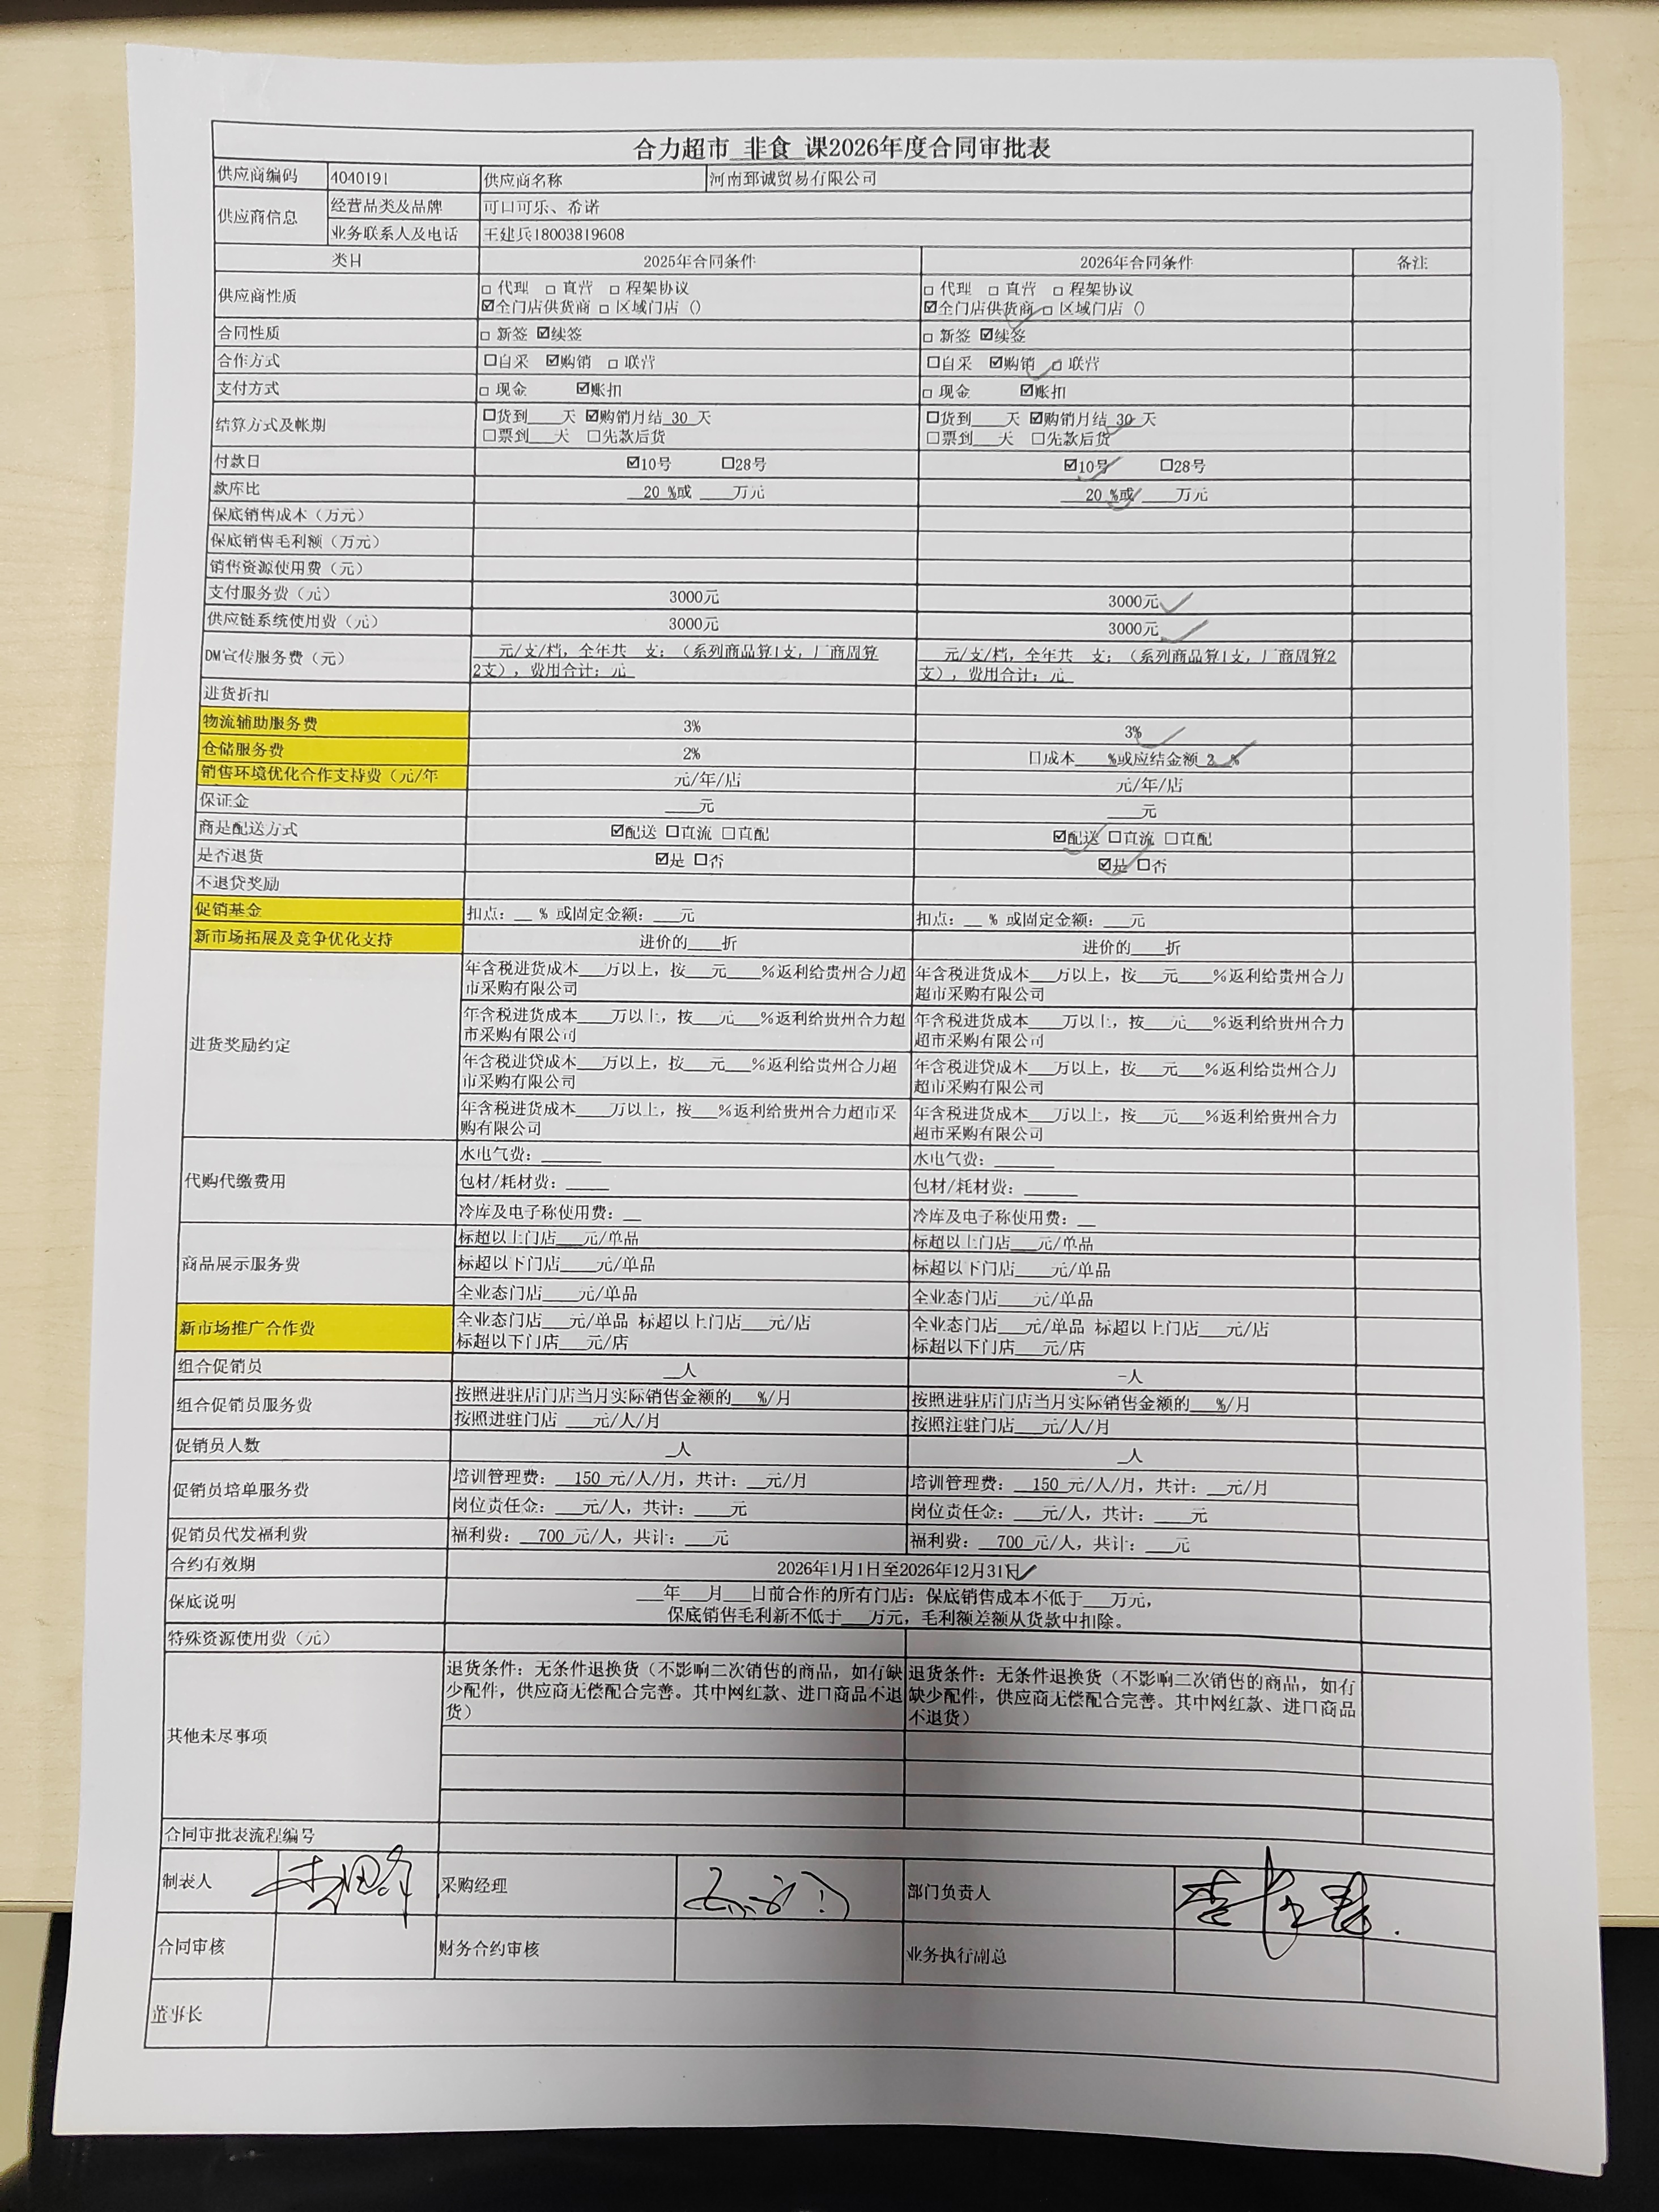 合力超市 非食 课2026年度合同审批表
供应商编码 4040191 供应商名称 河南郅诚贸易有限公司
供应商信息 经营品类及品牌 可口可乐、希诺
业务联系人及电话 王建兵18003819608
类目 2025年合同条件 2026年合同条件 备注
供应商性质 □ 代理 □ 直营 □ 程架协议 □ 代理 □ 直营 □ 程架协议
☑全门店供货商 □ 区域门店 () ☑全门店供货商 □ 区域门店 ()
合同性质 □ 新签 ☑续签 □ 新签 ☑续签
合作方式 □自采 ☑购销 □ 联营 □自采 ☑购销 □ 联营
支付方式 □ 现金 ☑账扣 □ 现金 ☑账扣
结算方式及帐期 □货到___天 ☑购销月结 30 天 □货到___天 ☑购销月结 30 天
□票到___天 □先款后货 □票到___天 □先款后货
付款日 ☑10号 □28号 ☑10号 □28号
款库比 20 %或 ___万元 20 %或 ___万元
保底销售成本（万元）
保底销售毛利额（万元）
销售资源使用费（元）
支付服务费（元） 3000元 3000元
供应链系统使用费（元） 3000元 3000元
DM宣传服务费（元） 元/支/档，全年共 支；（系列商品算1支，厂商周算 元/支/档，全年共 支；（系列商品算1支，厂商周算2
2支），费用合计：元 支），费用合计：元
进货折扣
物流辅助服务费 3% 3%
仓储服务费 2% 口成本___%或应结金额 2 %
销售环境优化合作支持费（元/年 元/年/店 元/年/店
保证金 ___元 ___元
商是配送方式 ☑配送 □直流 □直配 ☑配送 □直流 □直配
是否退货 ☑是 □否 ☑是 □否
不退货奖励
促销基金 扣点：__ % 或固定金额：___元 扣点：__ % 或固定金额：___元
新市场拓展及竞争优化支持 进价的___折 进价的___折
进货奖励约定 年含税进货成本___万以上，按___元___%返利给贵州合力超 年含税进货成本___万以上，按___元___%返利给贵州合力
市采购有限公司 超市采购有限公司
年含税进货成本___万以上，按___元___%返利给贵州合力超 年含税进货成本___万以上，按___元___%返利给贵州合力
市采购有限公司 超市采购有限公司
年含税进货成本___万以上，按___元___%返利给贵州合力超 年含税进货成本___万以上，按___元___%返利给贵州合力
市采购有限公司 超市采购有限公司
年含税进货成本___万以上，按___%返利给贵州合力超市采 年含税进货成本___万以上，按___元___%返利给贵州合力
购有限公司 超市采购有限公司
代购代缴费用 水电气费：______ 水电气费：______
包材/耗材费：____ 包材/耗材费：_____
冷库及电子称使用费：__ 冷库及电子称使用费：__
商品展示服务费 标超以上门店___元/单品 标超以上门店___元/单品
标超以下门店___元/单品 标超以下门店___元/单品
全业态门店___元/单品 全业态门店___元/单品
新市场推广合作费 全业态门店___元/单品 标超以上门店___元/店 全业态门店___元/单品 标超以上门店___元/店
标超以下门店___元/店 标超以下门店___元/店
组合促销员 ___人 -人
组合促销员服务费 按照进驻店门店当月实际销售金额的___%/月 按照进驻店门店当月实际销售金额的___%/月
按照进驻门店 ___元/人/月 按照注驻门店___元/人/月
促销员人数 __人 __人
促销员培单服务费 培训管理费： 150 元/人/月，共计：__元/月 培训管理费： 150 元/人/月，共计：__元/月
岗位责任金：___元/人，共计：___元 岗位责任金：___元/人，共计：___元
促销员代发福利费 福利费： 700 元/人，共计：___元 福利费： 700 元/人，共计：___元
合约有效期 2026年1月1日至2026年12月31日
保底说明 ___年___月___日前合作的所有门店：保底销售成本不低于___万元，
保底销售毛利新不低于___万元，毛利额差额从货款中扣除。
特殊资源使用费（元）
其他未尽事项 退货条件：无条件退换货（不影响二次销售的商品，如有缺 退货条件：无条件退换货（不影响二次销售的商品，如有
少配件，供应商无偿配合完善。其中网红款、进口商品不退 缺少配件，供应商无偿配合完善。其中网红款、进口商品
货） 不退货）
合同审批表流程编号
制表人 采购经理 部门负责人
合同审核 财务合约审核 业务执行副总
董事长